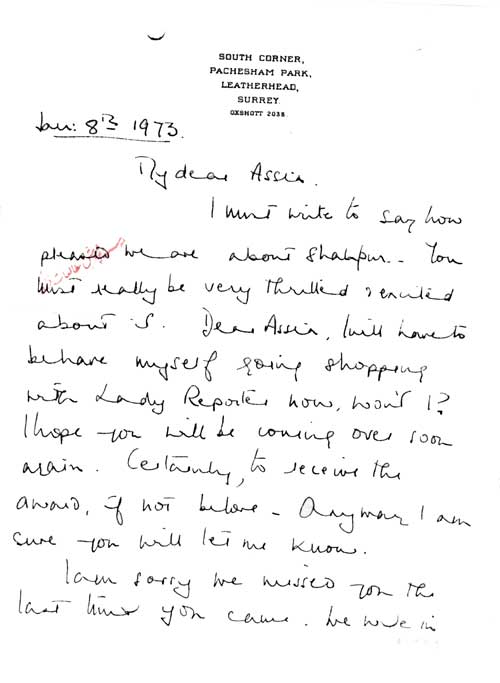 SOUTH CORNER,
PACHESHAM PARK,
LEATHERHEAD,
SURREY.
OXSHOTT 2038
Jan: 8th 1973.
My dear Assia.
I must write to say how
pleased we are about Shahpur.. You
must really be very thrilled & excited
about it. Dear Assia, I will have to
behave myself going shopping
with Lady Reporter now, won't I?
I hope you will be coming over soon
again. Certainly, to receive the
award, if not before - Anyway I am
sure you will let me know.
I am sorry we missed you the
last time you came. We were in